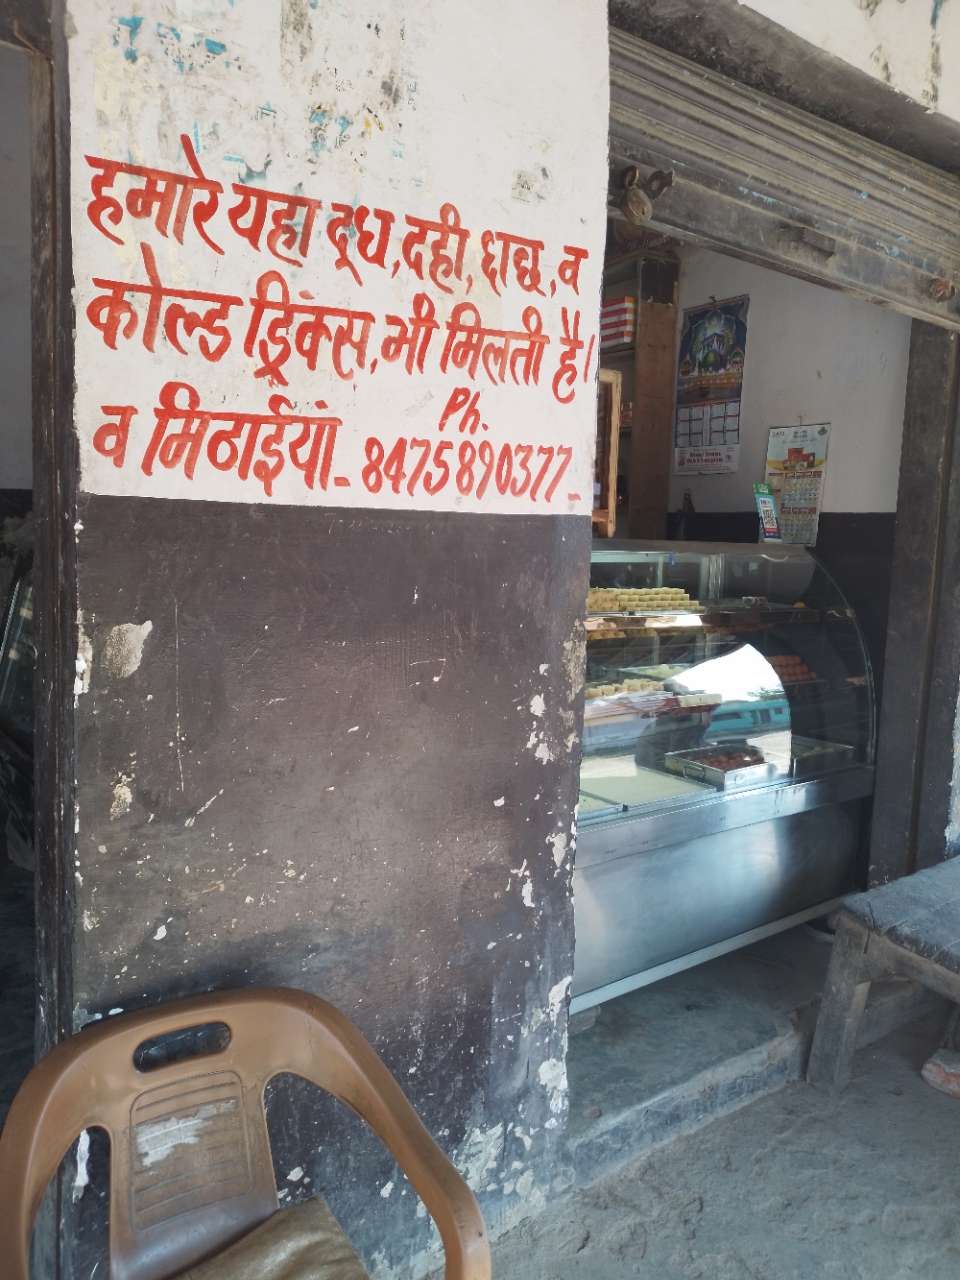 हमारे यहा दूध, दही, छाछ, व
कोल्ड ड्रिंक्स, भी मिलती है।
Ph.
व मिठाईयां - 8475890377 -